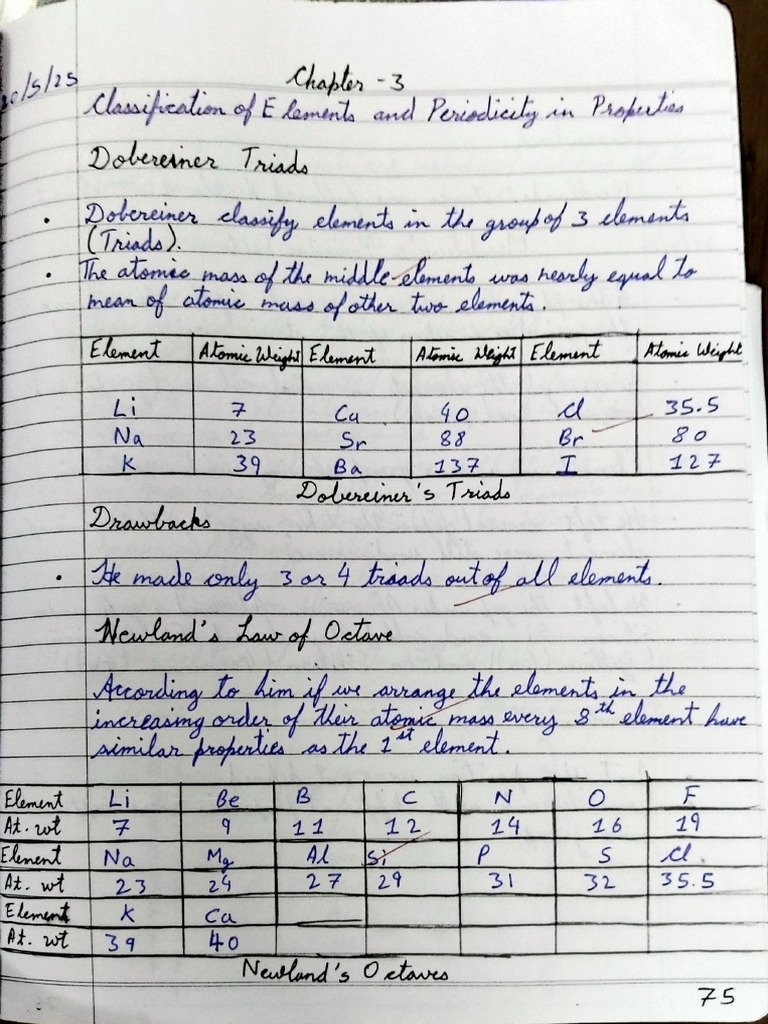 20/5/25
Chapter - 3
Classification of Elements and Periodicity in Properties
Dobereiner Triads
• Dobereiner classify elements in the group of 3 elements
(Triads).
• The atomic mass of the middle elements was nearly equal to
mean of atomic mass of other two elements.
Element Atomic Weight Element Atomic Weight Element Atomic Weight
Li 7 Ca 40 Cl 35.5
Na 23 Sr 88 Br 80
K 39 Ba 137 I 127
Dobereiner's Triads
Drawbacks
• He made only 3 or 4 triads out of all elements.
Newland's Law of Octave
According to him if we arrange the elements in the
increasing order of their atomic mass every 8th element have
similar properties as the 1st element.
Element Li Be B C N O F
At. wt 7 9 11 12 14 16 19
Element Na Mg Al Si P S Cl
At. wt 23 24 27 29 31 32 35.5
Element K Ca
At. wt 39 40
Newland's Octaves
75